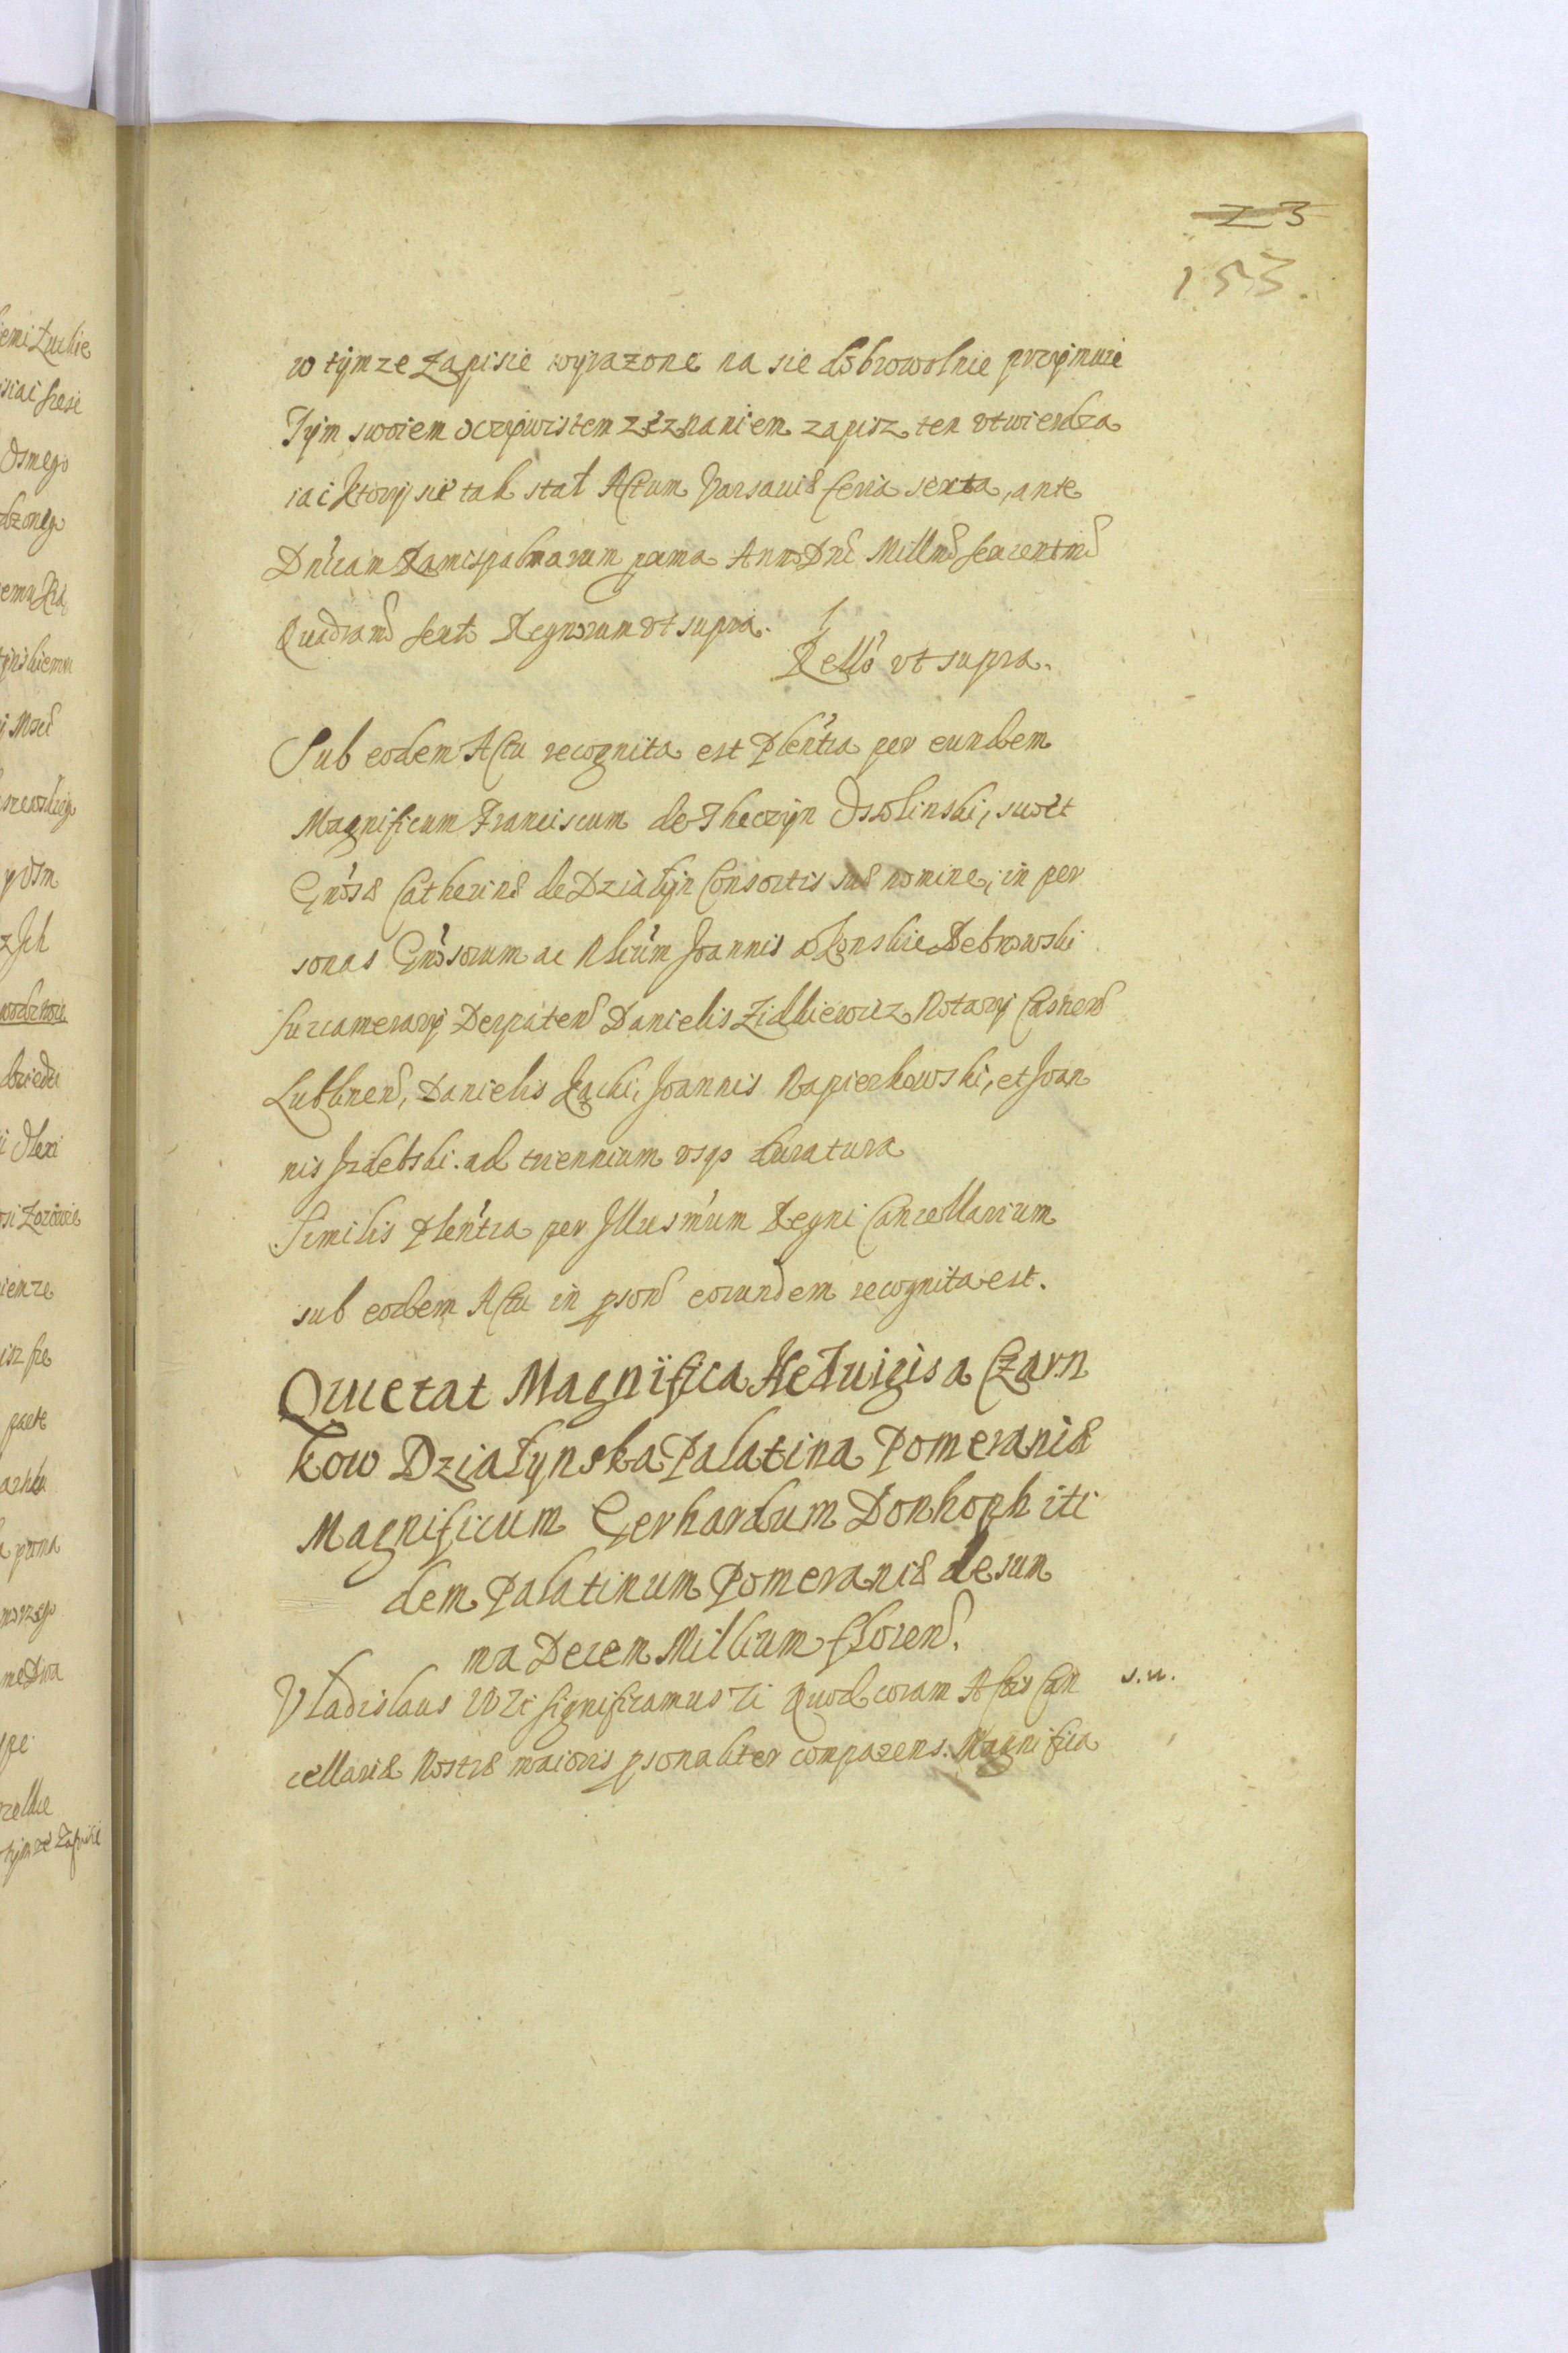 23
153.
w tÿmze zapisie wÿrazone na sie dobrowolnie przÿmuie
Tÿm swoiem oczÿwistem zeznaniem zapisz ten vtwierdza
iąc ktorÿ sie tak stał Actum Varsauiæ feria sexta, ante
Dn'icam Ramispalmarum pxma Anno Dni Millmo sexcentmo
Quadrano sexto Regnorum vt supra.
Rello vt supra.
Sub eodem Actu recognita est Plen'tia per eundem
Magnificum Franciscum de Theczÿn Ossolinski, suo et
Gn'osæ Catherinæ de Działÿn Consortis suæ nomine, in per
sonas Gn'osorum ac Nbium Joannis a Konskie Debrowski
succamerarÿ Derpaten Danielis Zidkiewicz Notarÿ Castren
Lublinen, Danielis Łącki, Joannis Napierkowski, et Joan
nis Jzdebski. ad triennium vsqe duratura
Similis Plen'tia per Jllusm'um Regni Cancellarium
sub eodem Actu in pson eorundem recognita est.
Quietat Magnifica Heduigis a Czarn
kow Działywnska Palatina Pomeraniæ
Magnificum Gerhardum Donhoph iti
dem Palatinum Pomeraniæ de sum
ma Decem Millium floren.
Vladislaus IV Zc significamus Zc Quod coram Actis Can
s.n.
cellariæ Nostræ maioris psonaliter comparens. Magnifica